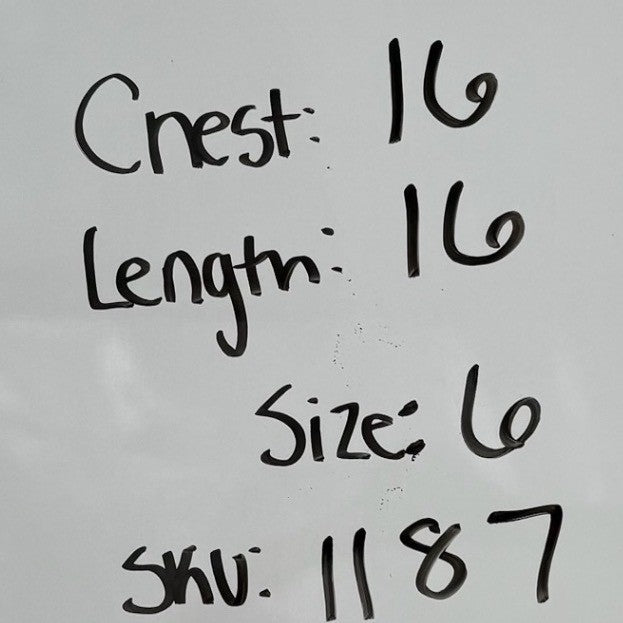 Chest: 16
Length: 16
Size: 6
SKU: 1187